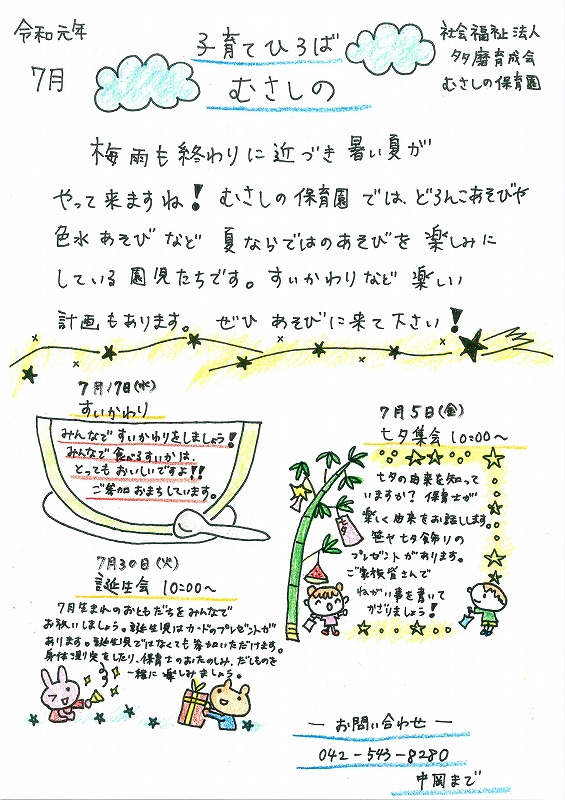 令和元年
7月
子育てひろば
むさしの
社会福祉法人
多摩育成会
むさしの保育園
梅雨も終わりに近づき暑い夏が
やって来ますね！むさしの保育園では、どろんこあそびや
色水あそびなど夏ならではのあそびを楽しみに
している園児たちです。すいかわりなど楽しい
計画もあります。ぜひあそびに来て下さい！
7月17日(水)
すいかわり
みんなですいかわりをしましょう！
みんなで食べるすいかは、
とってもおいしいですよ！！
ご参加おまちしています。
7月5日(金)
七夕集会 10:00〜
七夕の由来を知って
いますか？保育士が
楽しく由来をお話します。
笹や七夕飾りの
プレゼントがあります。
ご家族皆さんで
ねがい事を書いて
かざりましょう！
7月30日(火)
誕生会 10:00〜
7月生まれのおともだちをみんなで
お祝いしましょう。誕生児はカードのプレゼントが
あります。誕生児ではなくても参加いただけます。
身体測定をしたり、保育士のおたのしみ、だしものを
一緒に楽しみましょう。
― お問い合わせ ―
042-543-8280
中岡まで